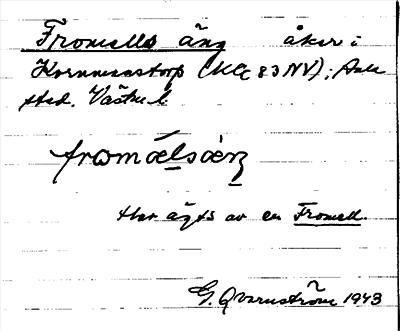 Fromells äng åker i
Kornmanstorp (KC 83 NV), Ask
stad, Västm. l
fromǽlsæ̀ŋ
Har ägts av en Fromell.
G. Qvarnström 1943